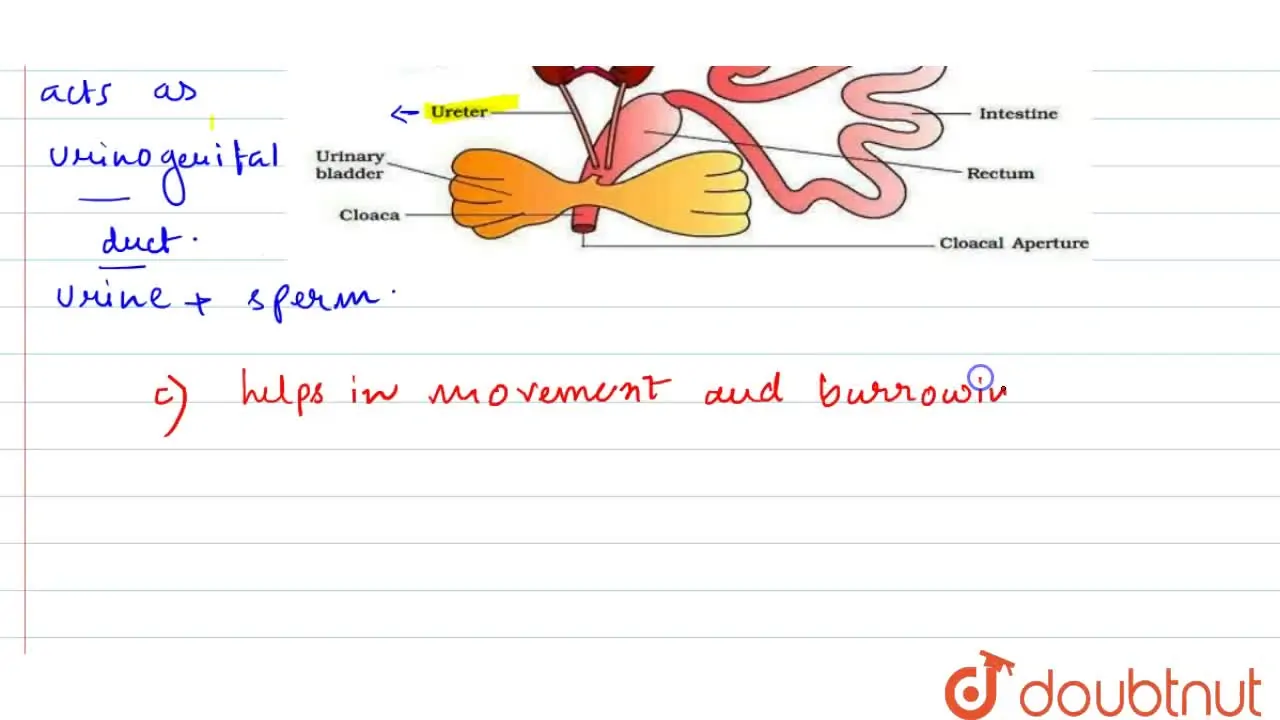 acts as
urinogenital
duct.
urine + sperm.
← Ureter
Urinary
bladder
Cloaca
Intestine
Rectum
Cloacal Aperture
c) helps in movement and burrowin
doubtnut